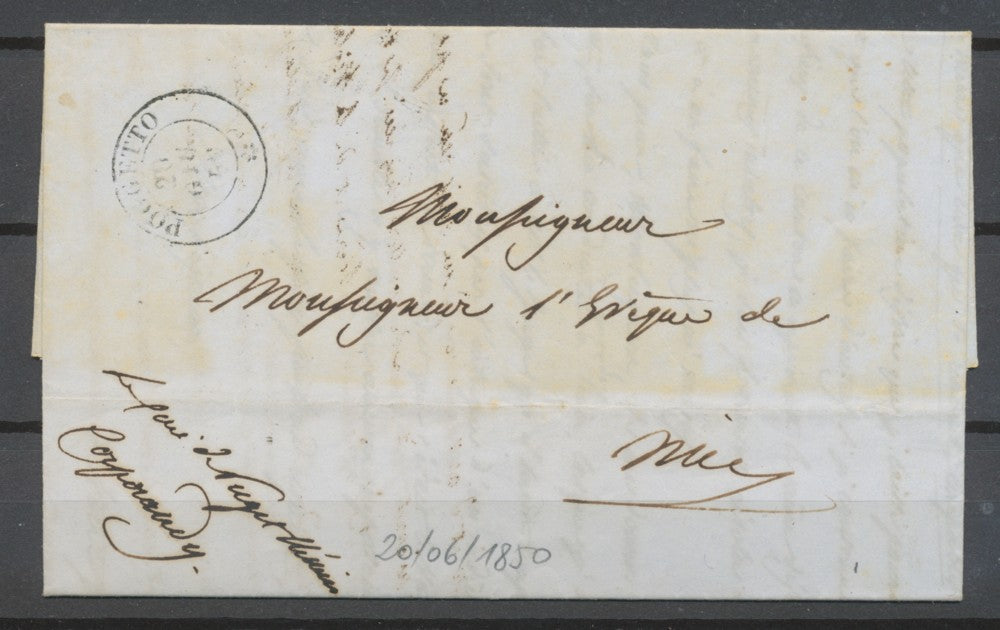 POGGETTO
20
GIU
Monseigneur
Monseigneur l'Evêque de
Nice
le curé de Puget Théniers
Corporandy.
20/06/1850